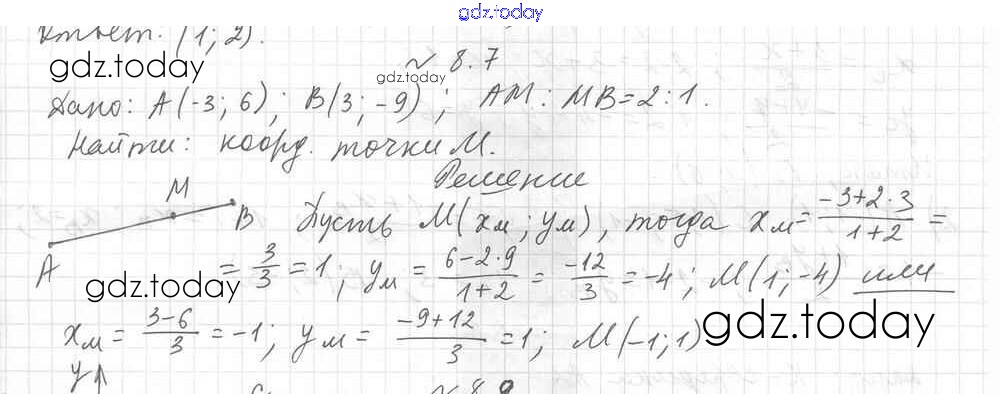 gdz.today
Ответ: (1; 2).
gdz.today
№ 8.7
gdz.today
Дано: A(-3; 6); B(3; -9); AM : MB = 2 : 1.
Найти: коорд. точки M.
Решение
A M B
Пусть M(xм; yм), тогда xм = (-3+2·3)/(1+2) =
= 3/3 = 1; yм = (6-2·9)/(1+2) = -12/3 = -4; M(1; -4) или
gdz.today
xм = (3-6)/3 = -1; yм = (-9+12)/3 = 1; M(-1; 1)
gdz.today
y